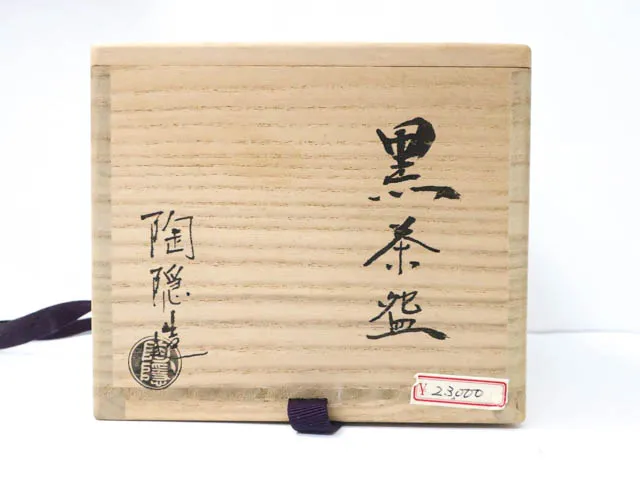 黒茶盌
陶隠造
¥ 23,000